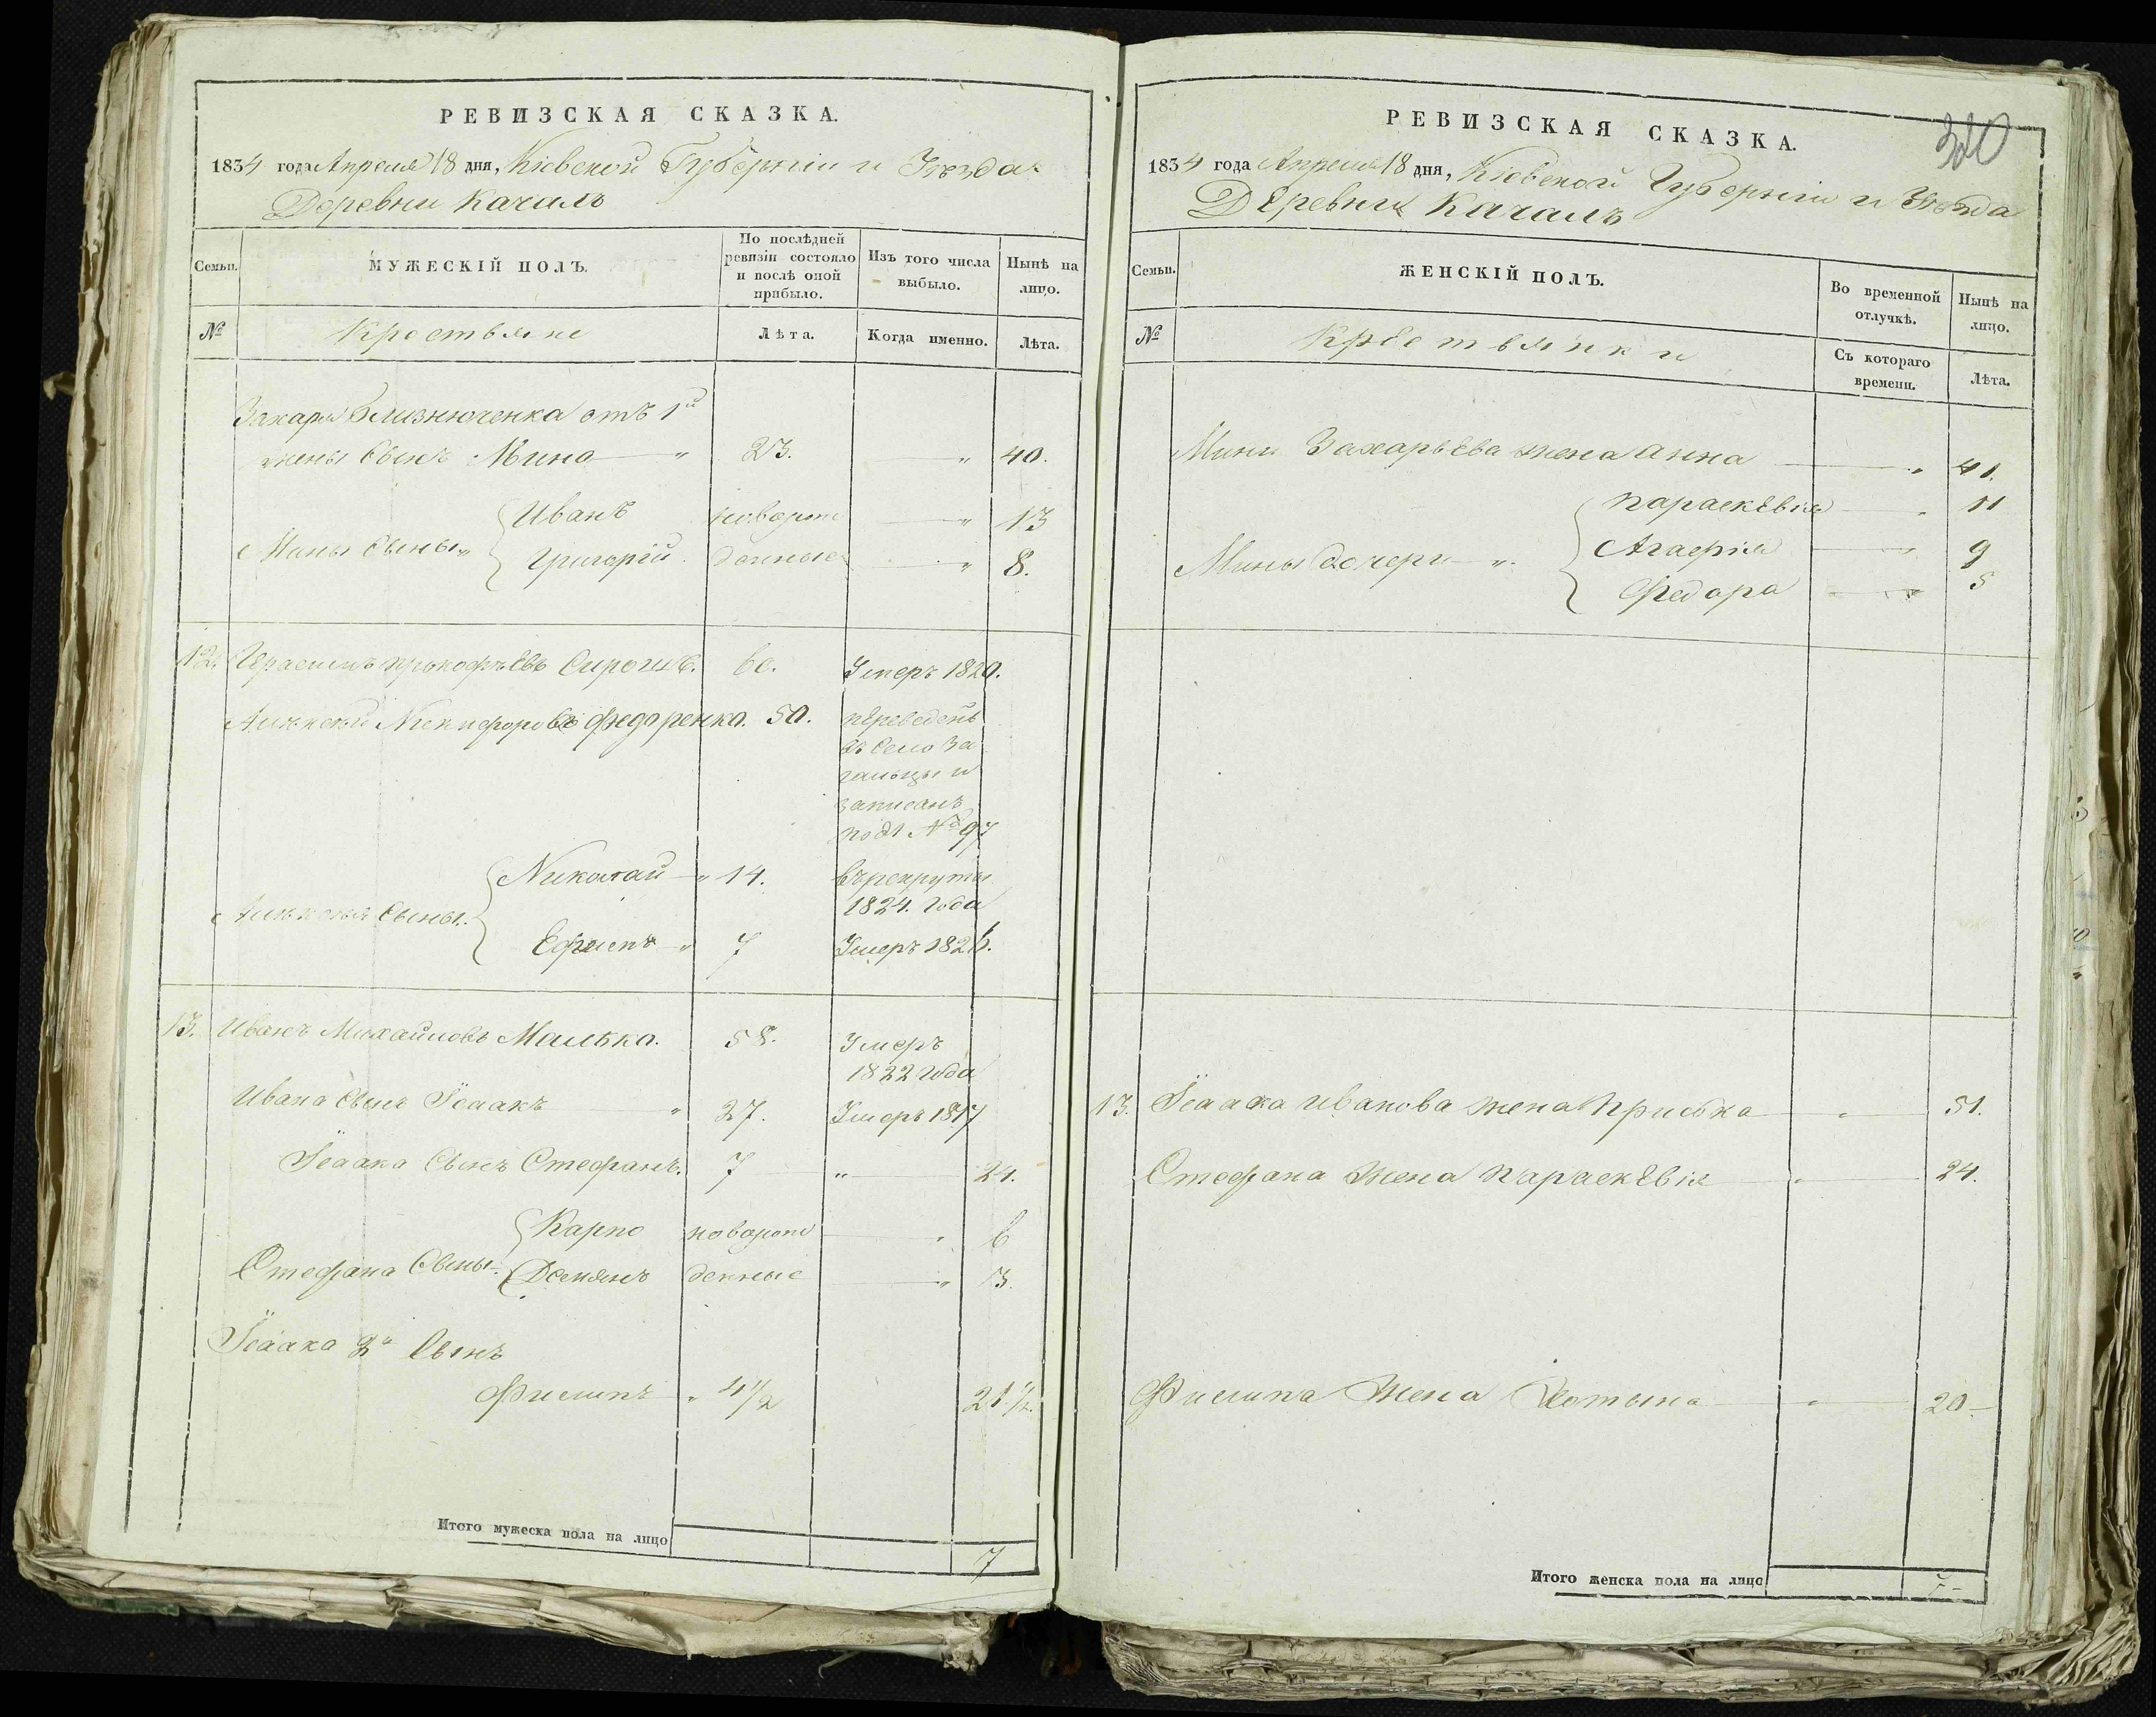 РЕВИЗСКАЯ СКАЗКА.
1834 года Апреля 18 дня, Кіевской Губерніи и Уезда
Деревни Качалъ
Семьи.
МУЖЕСКІЙ ПОЛЪ.
По послѣдней ревизіи состояло и послѣ оной прибыло.
Изъ того числа выбыло.
Нынѣ на лицо.
№
Крестьяне
Лѣта.
Когда именно.
Лѣта.
Захарія Близнюченка отъ 1й
жены Сынъ Мина " 23. " 40.
Мины Сыны " Иванъ новорож " 13
Григорій денные " 8.
12. Герасимъ Прокофьевъ 60. Умеръ 1820.
Алексей Никифоровъ Федоренко. 50. переведенъ
въ Село За
гальцы и
записанъ
подъ № 97
Алексея Сыны. Николай " 14. въ рекруты
1824. года
Ефимъ " 7 Умеръ 1826.
13. Иванъ Михайловъ Малѣко. 58. Умеръ
1822 года
Ивана Сынъ Ісаакъ " 27. Умеръ 1817
Ісаака Сынъ Стефанъ. 7 " 24.
Карпо новорож " 6
Стефана Сыны. Демянъ денные " 3.
Ісаака 2й Сынъ
Филипъ " 4 1/2 21 1/2.
Итого мужеска пола на лицо 7
РЕВИЗСКАЯ СКАЗКА.
1834 года Апреля 18 дня, Кіевской Губерніи и Уезда
Деревни Качалъ
Семьи.
ЖЕНСКІЙ ПОЛЪ.
Во временной отлучкѣ.
Нынѣ на лицо.
№
Крестьянки
Съ котораго времени.
Лѣта.
Мины Захарьева жена Анна " 41.
Параскевія " 11
Мины дочери " Агафія " 9
Федора " 5
13. Ісаака Иванова жена Приська " 51.
Стефана Жена Параскевія " 24.
Филипа Жена " 20
Итого женска пола на лицо